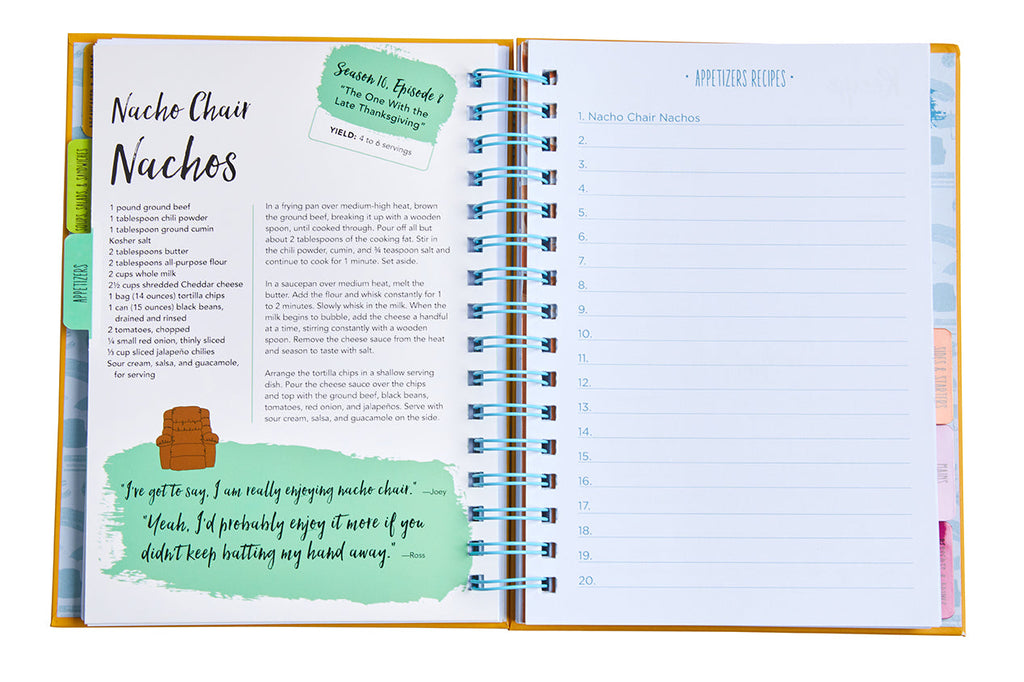 Season 10, Episode 8
"The One With the
Late Thanksgiving"
YIELD: 4 to 6 servings
Nacho Chair
Nachos
1 pound ground beef
1 tablespoon chili powder
1 tablespoon ground cumin
Kosher salt
2 tablespoons butter
2 tablespoons all-purpose flour
2 cups whole milk
2½ cups shredded Cheddar cheese
1 bag (14 ounces) tortilla chips
1 can (15 ounces) black beans,
drained and rinsed
2 tomatoes, chopped
¼ small red onion, thinly sliced
⅓ cup sliced jalapeño chilies
Sour cream, salsa, and guacamole,
for serving
In a frying pan over medium-high heat, brown
the ground beef, breaking it up with a wooden
spoon, until cooked through. Pour off all but
about 2 tablespoons of the cooking fat. Stir in
the chili powder, cumin, and ¾ teaspoon salt and
continue to cook for 1 minute. Set aside.
In a saucepan over medium heat, melt the
butter. Add the flour and whisk constantly for 1
to 2 minutes. Slowly whisk in the milk. When the
milk begins to bubble, add the cheese a handful
at a time, stirring constantly with a wooden
spoon. Remove the cheese sauce from the heat
and season to taste with salt.
Arrange the tortilla chips in a shallow serving
dish. Pour the cheese sauce over the chips
and top with the ground beef, black beans,
tomatoes, red onion, and jalapeños. Serve with
sour cream, salsa, and guacamole on the side.
"I've got to say, I am really enjoying nacho chair." —Joey
"Yeah, I'd probably enjoy it more if you
didn't keep batting my hand away." —Ross
SOUPS, SALADS, & SANDWICHES
APPETIZERS
• APPETIZERS RECIPES •
1. Nacho Chair Nachos
2.
3.
4.
5.
6.
7.
8.
9.
10.
11.
12.
13.
14.
15.
16.
17.
18.
19.
20.
SIDES & STARTERS
MAINS